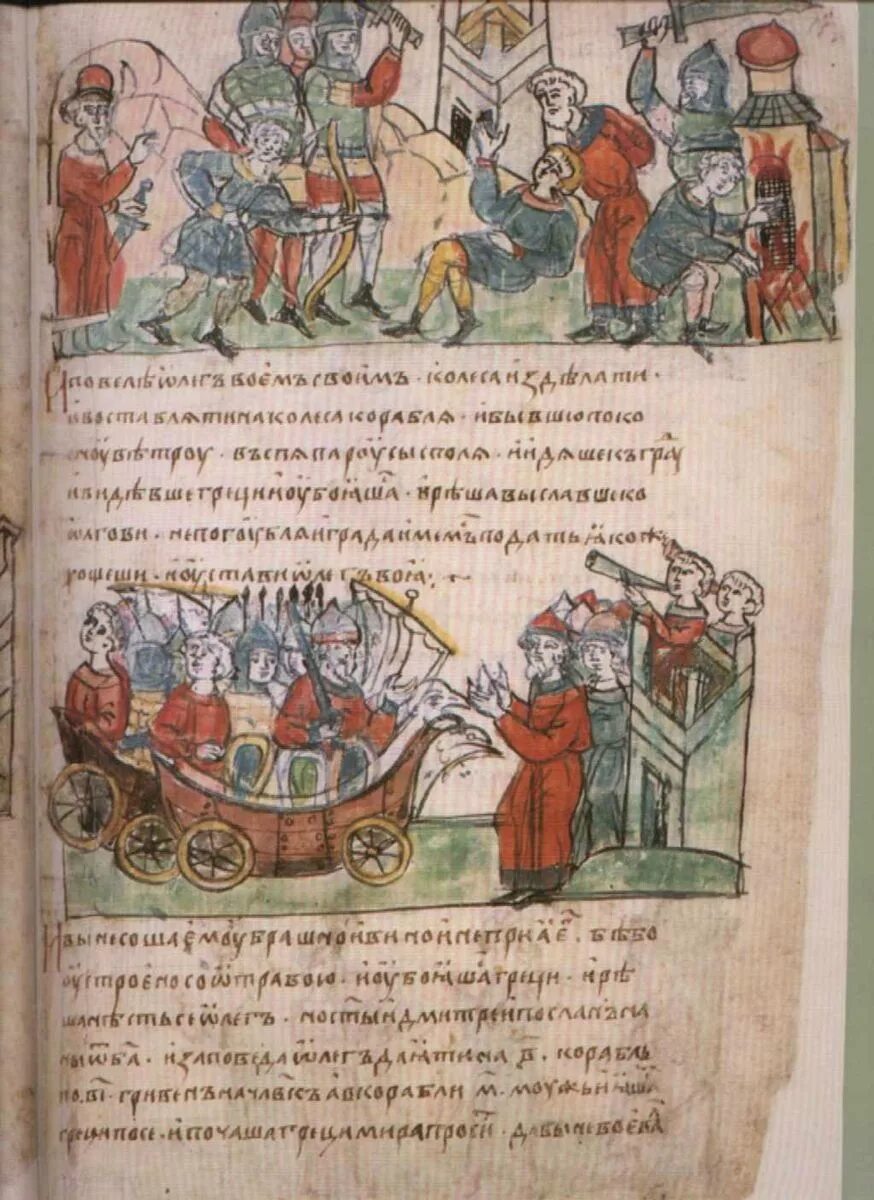 И повелѣ ѡлегъ воемъ своимъ · колеса издѣлати ·
и воставляти на колеса корабля · и бывшю поко
сноу вѣтроу · въспя парусы с поля · и идяше къ граⷣу
и видѣвше греци и оубоꙗшаⷭ · и рѣша выславше ко
ѡлгови · не погоубляи града имемъ подать ꙗкоже
хощеши · и оустави ѡлегъ воꙗ ·
И вынесоша емоу брашно и вино и не приа еⷢ · бѣ бо
оустроено со ѡтравою · и оубоꙗшаⷭ греци · и рѣ
ша нѣсть се ѡлегъ · но сты и дмитреи посланъ на
ны ѿ ба · и заповеда ѡлегъ даꙗти на в҃ · корабль
по · в҃і · гривенъ на члвкъ а в корабли м҃ · моужь и ꙗшаⷭ
греци по се · и почаша греци мира просиⷮ · дабы не воевaⷧ